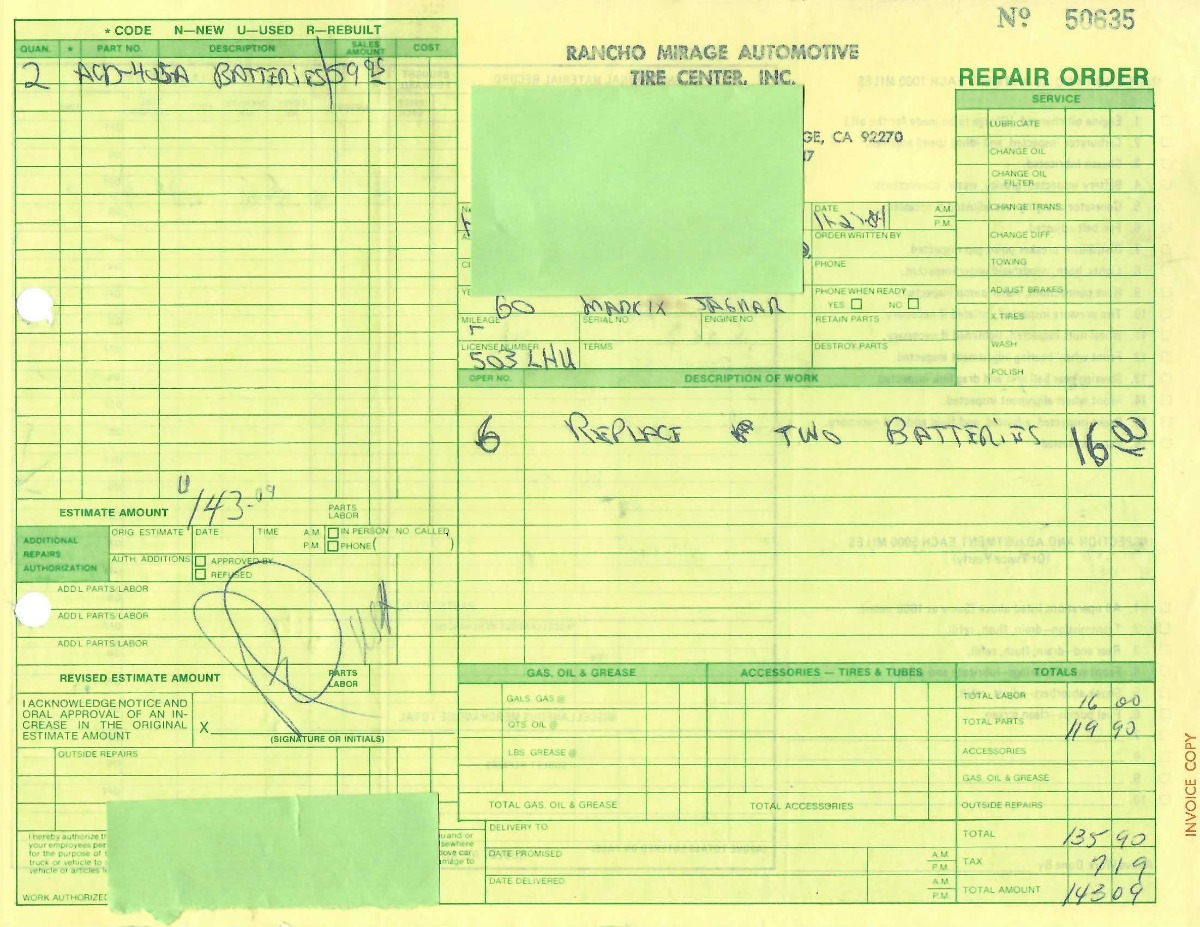 Nº 50635
* CODE N—NEW U—USED R—REBUILT
QUAN. * PART NO. DESCRIPTION SALES AMOUNT COST
2 ACD-405A BATTERIES 59 95
RANCHO MIRAGE AUTOMOTIVE
TIRE CENTER, INC.
GE, CA 92270
REPAIR ORDER
SERVICE
LUBRICATE
CHANGE OIL
CHANGE OIL FILTER
CHANGE TRANS.
CHANGE DIFF.
TOWING
ADJUST BRAKES
X TIRES
WASH
POLISH
DATE 11-27-81 A.M.
P.M.
ORDER WRITTEN BY
PHONE
PHONE WHEN READY
YES NO
60 MARK IX JAGUAR
MILEAGE SERIAL NO. ENGINE NO. RETAIN PARTS
LICENSE NUMBER TERMS DESTROY PARTS
503 LHU
OPER NO. DESCRIPTION OF WORK
6 REPLACE TWO BATTERIES 16 00
ESTIMATE AMOUNT 143.09 PARTS LABOR
ADDITIONAL REPAIRS AUTHORIZATION
ORIG. ESTIMATE DATE TIME A.M. IN PERSON NO. CALLED
P.M. PHONE ( )
AUTH. ADDITIONS APPROVED BY
REFUSED
ADD'L PARTS/LABOR
ADD'L PARTS/LABOR
ADD'L PARTS/LABOR
REVISED ESTIMATE AMOUNT PARTS LABOR
I ACKNOWLEDGE NOTICE AND
ORAL APPROVAL OF AN IN-
CREASE IN THE ORIGINAL
ESTIMATE AMOUNT
X
(SIGNATURE OR INITIALS)
OUTSIDE REPAIRS
GAS, OIL & GREASE ACCESSORIES — TIRES & TUBES TOTALS
GALS. GAS @
QTS. OIL @
LBS. GREASE @
TOTAL GAS, OIL & GREASE TOTAL ACCESSORIES
TOTAL LABOR 16 00
TOTAL PARTS 119 90
ACCESSORIES
GAS, OIL & GREASE
OUTSIDE REPAIRS
TOTAL 135 90
TAX 7 19
TOTAL AMOUNT 143 09
DELIVERY TO
DATE PROMISED A.M.
P.M.
DATE DELIVERED A.M.
P.M.
I hereby authorize
your employees
for the purpose of
truck or vehicle to
vehicle or articles
WORK AUTHORIZED
INVOICE COPY